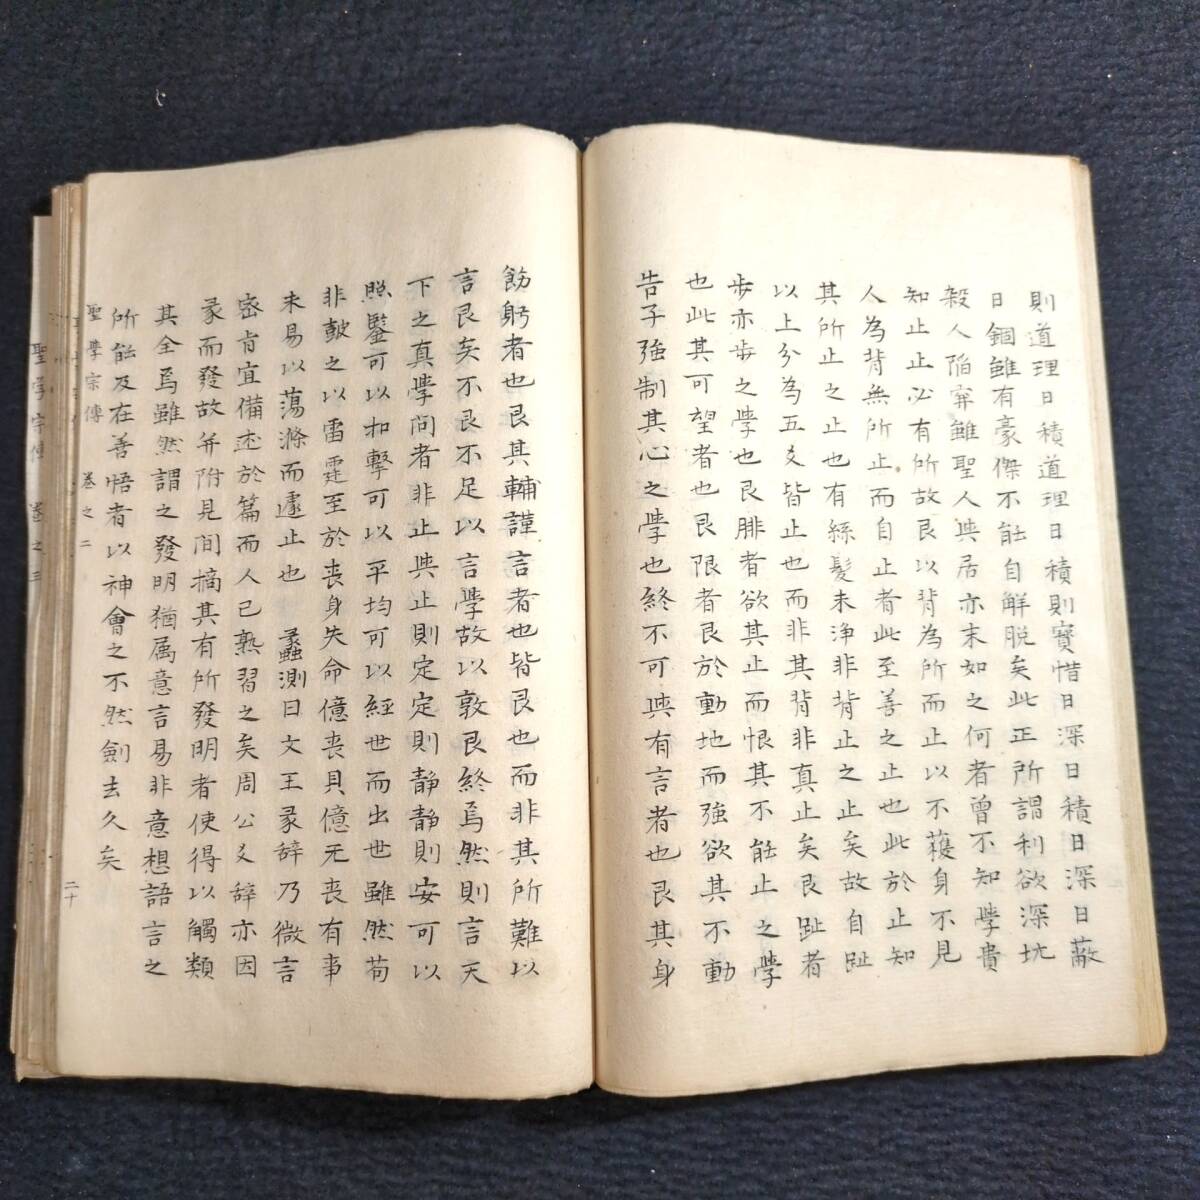 則道理日積道理日積則寳惜日深日積日深日蔽
日錮雖有豪傑不能自解脱矣此正所謂利欲深坑
殺人陷穽雖聖人與居亦末如之何者曾不知學貴
知止止必有所故艮以背為所而止以不獲身不見
人為背無所止而自止者此至善之止也此於止知
其所止之止也有絲髮未浄非背止之止矣故自趾
以上分為五爻皆止也而非其背非真止矣艮趾者
步亦步之學也艮腓者欲其止而恨其不能止之學
也此其可望者也艮限者艮於動地而強欲其不動
告子強制其心之學也終不可與有言者也艮其身
飭躬者也艮其輔謹言者也皆艮也而非其所難以
言艮矣不艮不足以言學故以敦艮終焉然則言天
下之真學問者非止與止則定定則静静則安可以
照鑒可以扣擊可以平均可以經世而出世雖然苟
非皷之以雷霆至於丧身失命億丧貝億无丧有事
未易以蕩滌而遽止也　蠡測曰文王彖辞乃微言
宻肯宜備述於篇而人已熟習之矣周公爻辞亦因
彖而發故并附見間摘其有所發明者使得以觸類
其全焉雖然謂之發明猶属意言易非意想語言之
所能及在善悟者以神會之不然劍去久矣
聖學宗傳　卷之二　二十
聖學宗傳　卷之三